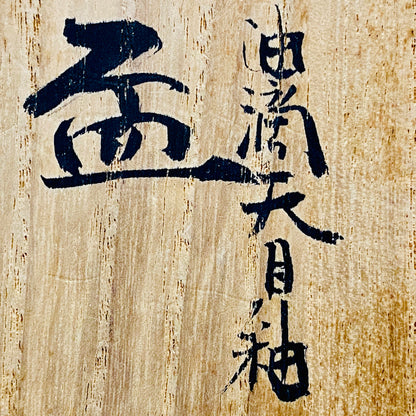 油滴天目釉
盃